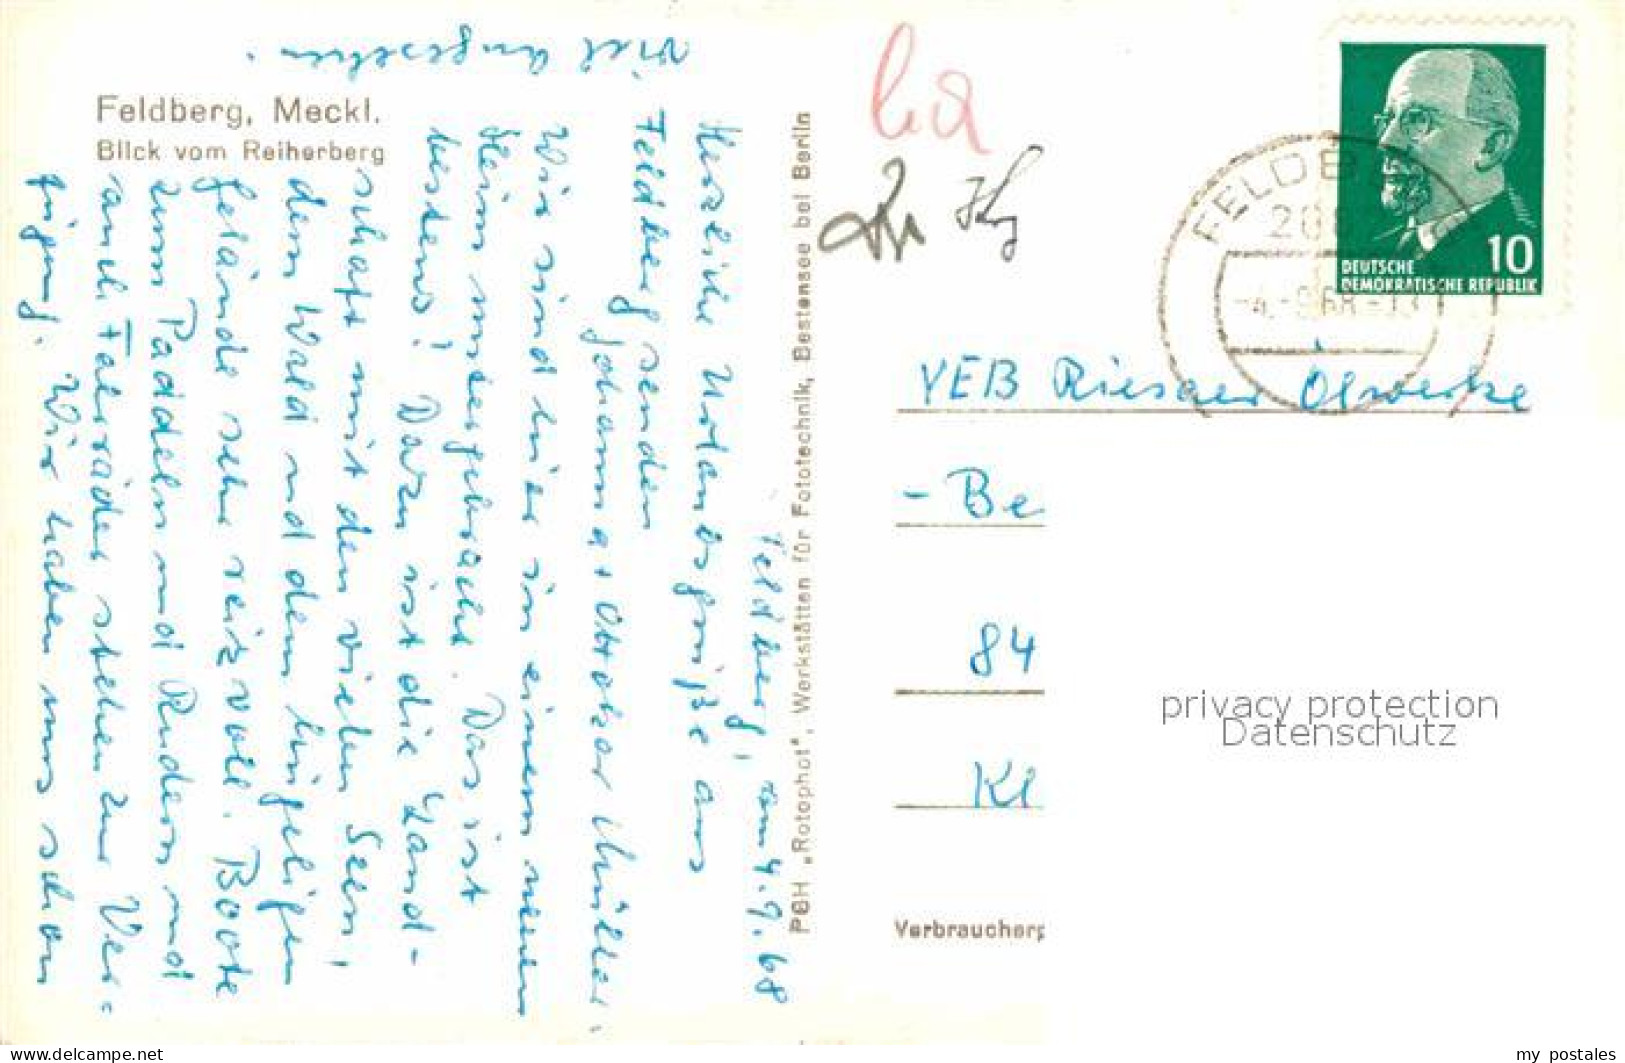 Feldberg, Meckl.
Blick vom Reiherberg
Feldberg, am 4.9.68
Herzliche Urlaubsgrüße aus
Feldberg senden
Johanna + Ottokar Müller.
Wir sind hier in einem neuen
Heim untergebracht. Das ist
bestens! Dazu ist die Land-
schaft mit den vielen Seen,
dem Wald und dem hügeligen
Gelände sehr reizvoll. Boote
zum Paddeln und Rudern und
auch Fahrräder stehen zur Ver=
fügung. Wir haben uns schon
viel angesehen.
PGH „Rotophot", Werkstätten für Fototechnik, Bestensee bei Berlin
DEUTSCHE
DEMOKRATISCHE REPUBLIK
10
FELDB
-4.-9.68-13
VEB Riesaer Ölwerke
- Be
84
Kl
Verbraucherp
privacy protection
Datenschutz
my_postales
www.delcampe.net